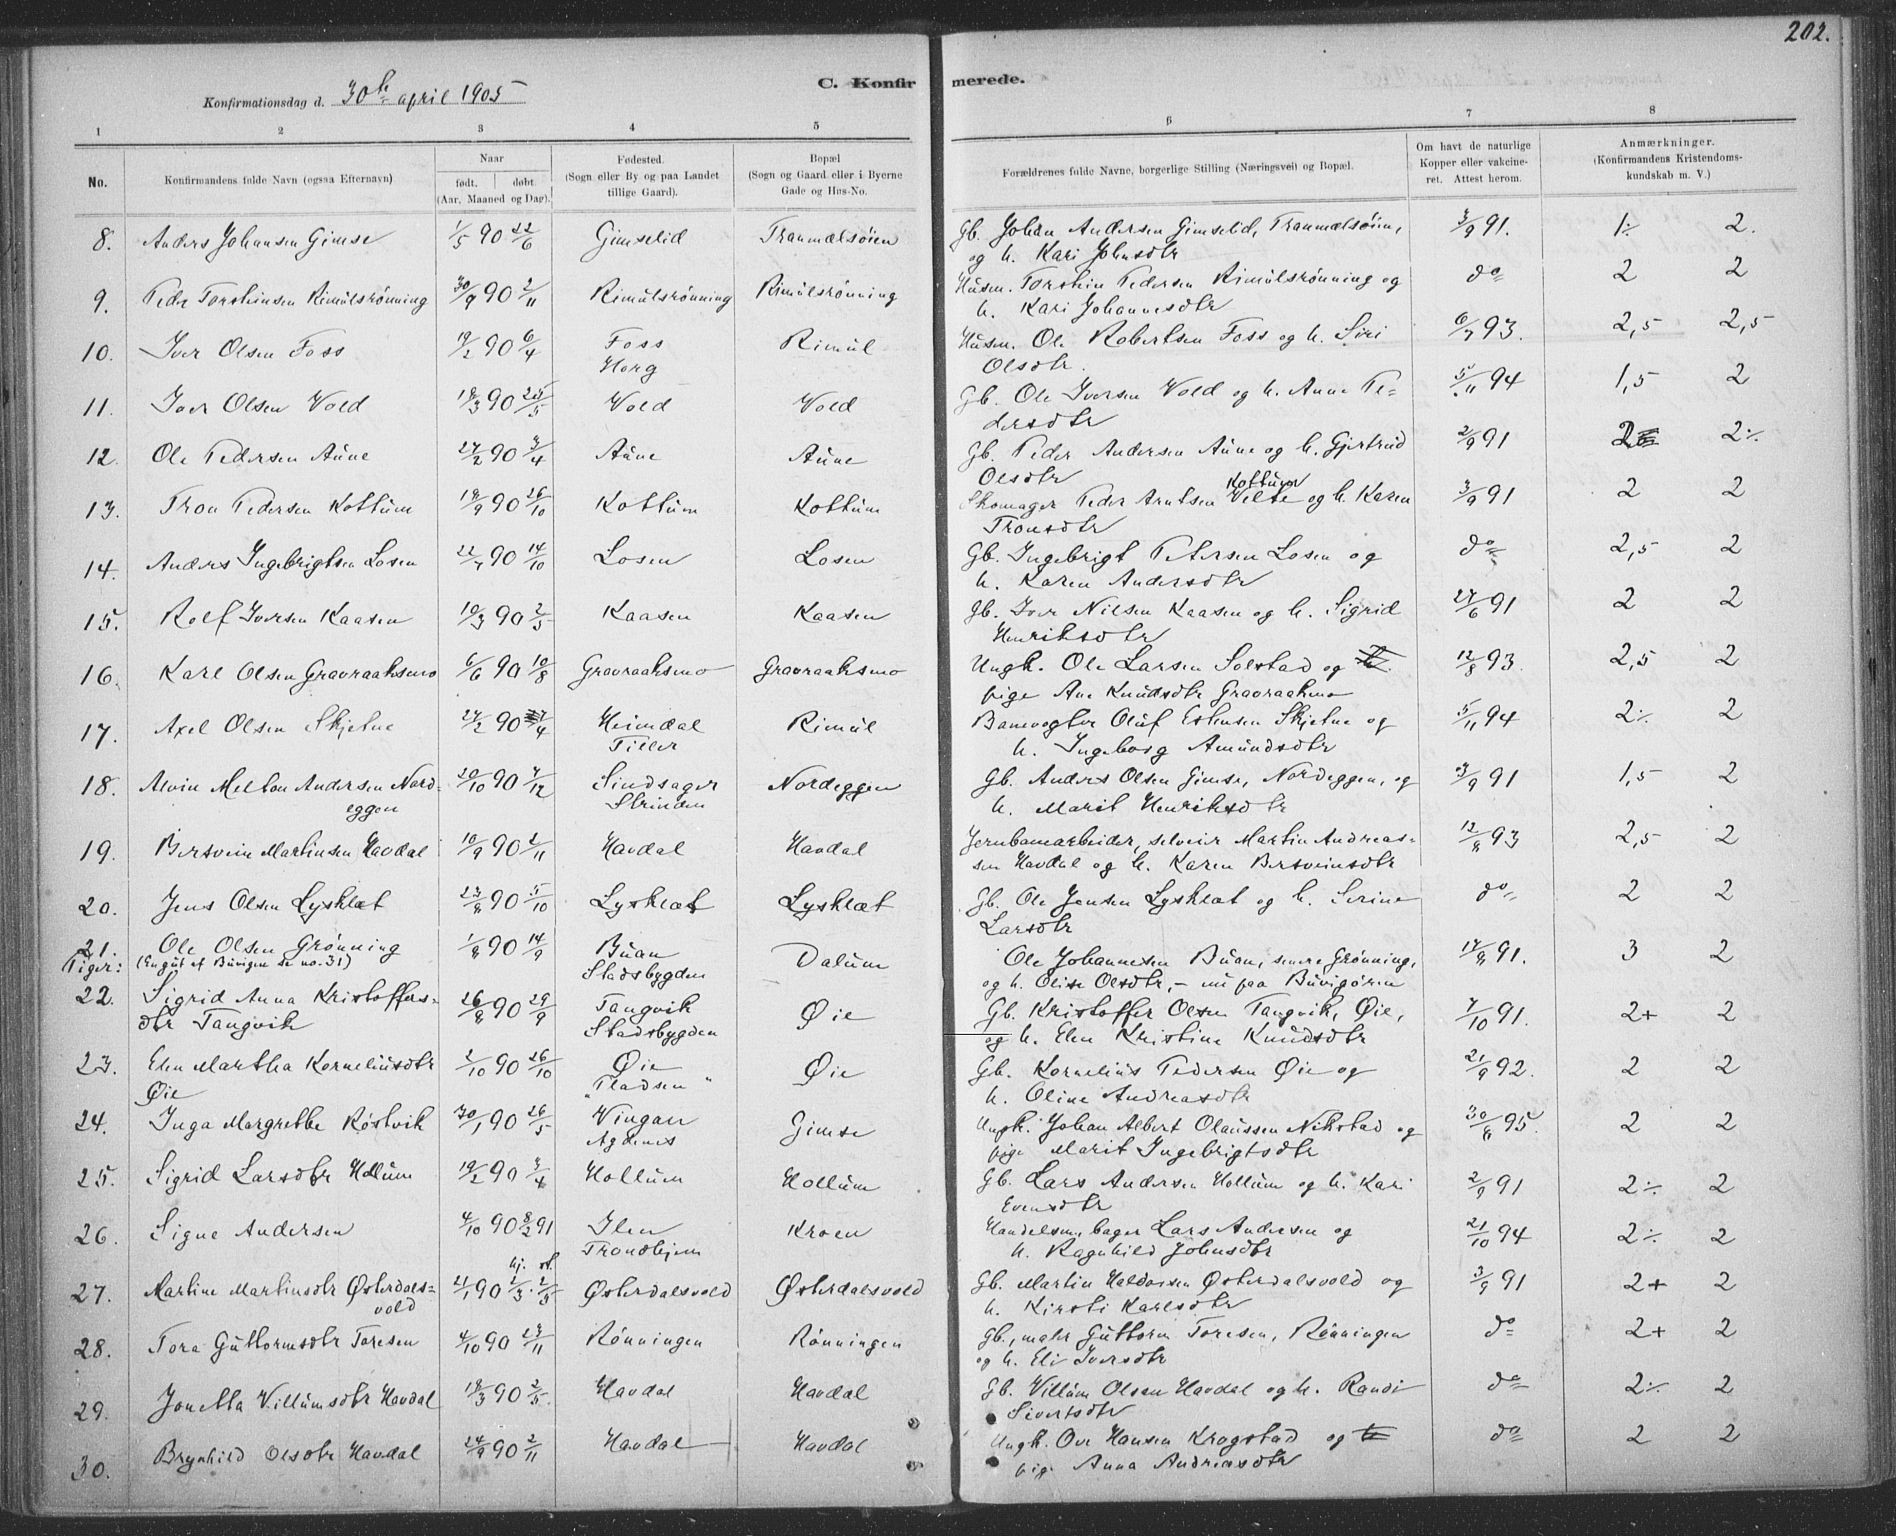 202.
Konfirmationsdag d. 30te april 1905
C. Konfirmerede.
1 2 3 4 5 6 7 8
No.
Konfirmandens fulde Navn (ogsaa Efternavn)
Naar
født. døbt.
(Aar, Maaned og Dag).
Fødested.
(Sogn eller By og paa Landet
tillige Gaard).
Bopæl
(Sogn og Gaard eller i Byerne
Gade og Hus-No.
Forældrenes fulde Navne, borgerlige Stilling (Næringsvei) og Bopæl.
Om havt de naturlige
Kopper eller vakcine-
ret. Attest herom.
Anmærkninger.
(Konfirmandens Kristendoms-
kundskab m. V.)
8. Anders Johansen Gimse 1/5 90 22/6 Gimselid Tranmælsøien Gb. Johan Andersen Gimselid, Tranmælsøien, 3/9 91. 1÷ 2.
og h. Kari Johnsdtr
9. Peder Torsteinsen Rimulsrønning 30/9 90 2/11 Rimulsrønning Rimulsrønning Husm. Torstein Pedersen Rimulsrønning og do 2 2
h. Kari Johannesdtr
10. Iver Olsen Foss 19/2 90 6/4 Foss Rimul Husm. Ole Robertsen Foss og h. Siri 6/7 93. 2,5 2,5
Horg Olsdtr.
11. Iver Olsen Vold 18/3 90 25/5 Vold Vold Gb. Ole Iversen Vold og h. Anne Pe- 5/11 94 1,5 2
dersdtr
12. Ole Pedersen Aune 27/2 90 7/4 Aune Aune Gb. Peder Andersen Aune og h. Gjertrud 2/9 91 2 2÷
Olsdtr
Kottum
13. Tron Pedersen Kottum 18/9 90 26/10 Kottum Kottum Skomager Peder Arntsen og h. Karen 3/9 91 2 2
Tronsdtr
14. Anders Ingebrigtsen Losen 22/7 90 14/10 Losen Losen Gb. Ingebrigt Petersen Losen og do 2,5 2
h. Karen Andersdtr
15. Rolf Iversen Kaasen 10/3 90 2/5 Kaasen Kaasen Gb. Iver Nilsen Kaasen og h. Sigrid 27/6 91 2 2
Henriksdtr
16. Karl Olsen Gravraaksmo 6/6 90 10/8 Gravraaksmo Gravraaksmo Ungk. Ole Larsen Solstad og 12/8 93. 2,5 2
pige Ane Knudsdtr Gravraaksmo
17. Axel Olsen Skjetne 27/2 90 7/4 Heimdal Rimul Banevogter Oluf Estensen Skjetne og 5/11 94 2÷ 2
Tiller h. Ingeborg Amundsdtr
18. Alvin Melton Andersen Nord- 20/10 90 7/12 Sindsager Nordeggen Gb. Anders Olsen Gimse, Nordeggen, og 3/9 91 1,5 2
eggen Strinden h. Marit Henriksdtr
19. Bersvein Martinsen Havdal 10/9 90 2/11 Havdal Havdal Jernbanearbeider, selveier Martin Andreas- 12/8 93 2,5 2
sen Havdal og h. Karen Bersveinsdtr
20. Jens Olsen Lysklæt 23/8 90 5/10 Lysklæt Lysklæt Gb. Ole Jensen Lysklæt og h. Serine do 2 2
Larsdtr
21. Ole Olsen Grønning 1/8 90 14/9 Buan Dalum Ole Johannesen Buan, senere Grønning, 17/8 91. 3 2
Piger: (En gut af Buvigen se no. 31) Stadsbygden og h. Olise Olsdtr, – nu paa Buvigøren
22. Sigrid Anna Kristoffers- 26/8 90 29/9 Tangvik Øie Gb. Kristoffer Olsen Tangvik, Øie, 7/10 91. 2+ 2
dtr Tangvik Stadsbygden og h. Elen Kristine Knudsdtr
23. Elen Martha Korneliusdtr 2/10 90 26/10 Øie Øie Gb. Kornelius Pedersen Øie og 21/9 92. 2 2
Øie Pladsen " h. Oline Andreasdtr
24. Inga Margrethe Røstvik 30/1 90 26/5 Vingan Gimse Ungk. Johan Albert Olaussen Nikstad og 30/8 95. 2 2
Agdenes pige Marit Ingebrigtsdtr
25. Sigrid Larsdtr Hollum 19/2 90 7/4 Hollum Hollum Gb. Lars Andersen Hollum og h. Kari 2/9 91 2÷ 2
Evensdtr
26. Signe Andersen 4/10 90 8/2 91 Ilen Kroen Handelsm., bager Lars Andersen og 21/10 94 2÷ 2
Trondhjem h. Ragnhild Johnsdtr
hj. st.
27. Martine Martinsdtr Østerdals- 21/1 90 2/3 2/5 Østerdalsvold Østerdalsvold Gb. Martin Haldorsen Østerdalsvold og 3/9 91 2+ 2
vold h. Kirsti Karlsdtr
28. Tora Guttormsdtr Toresen 4/10 90 23/11 Rønningen Rønningen Gb., maler Guttorm Toresen, Rønningen do 2+ 2
og h. Eli Iversdtr
29. Jonetta Villumsdtr Havdal 18/3 90 2/5. Havdal Havdal Gb. Villum Olsen Havdal og h. Randi do 2÷ 2
Sivertsdtr
30. Brynhild Olsdtr Havdal 24/9 90 2/11 Havdal Havdal Ungk. Ove Hansen Krogstad og do 2 2
pige Anna Andreasdtr